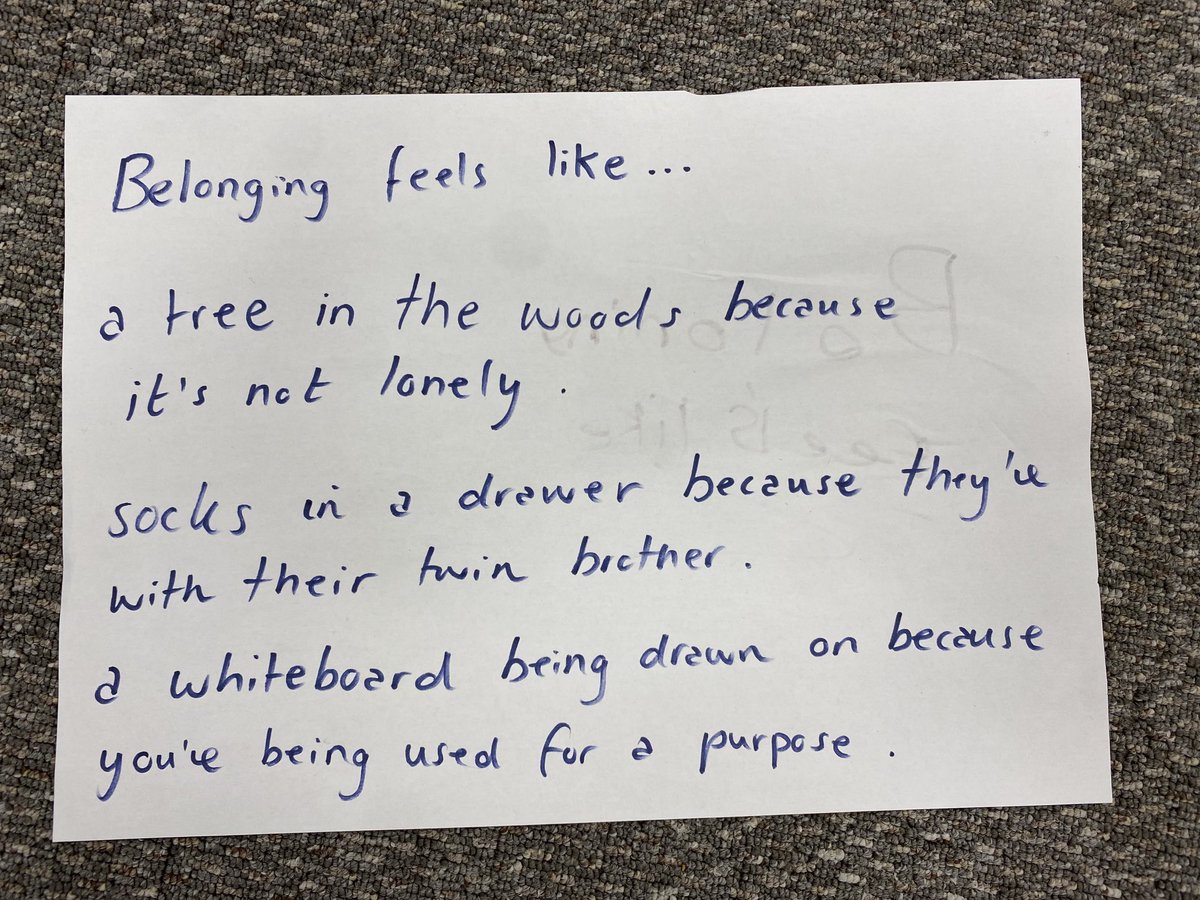 Belonging feels like...
a tree in the woods because
it's not lonely.
socks in a drawer because they're
with their twin brother.
a whiteboard being drawn on because
you're being used for a purpose.